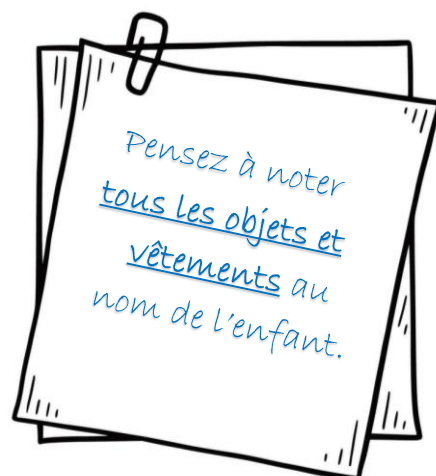 Pensez à noter
tous les objets et
vêtements au
nom de l'enfant.